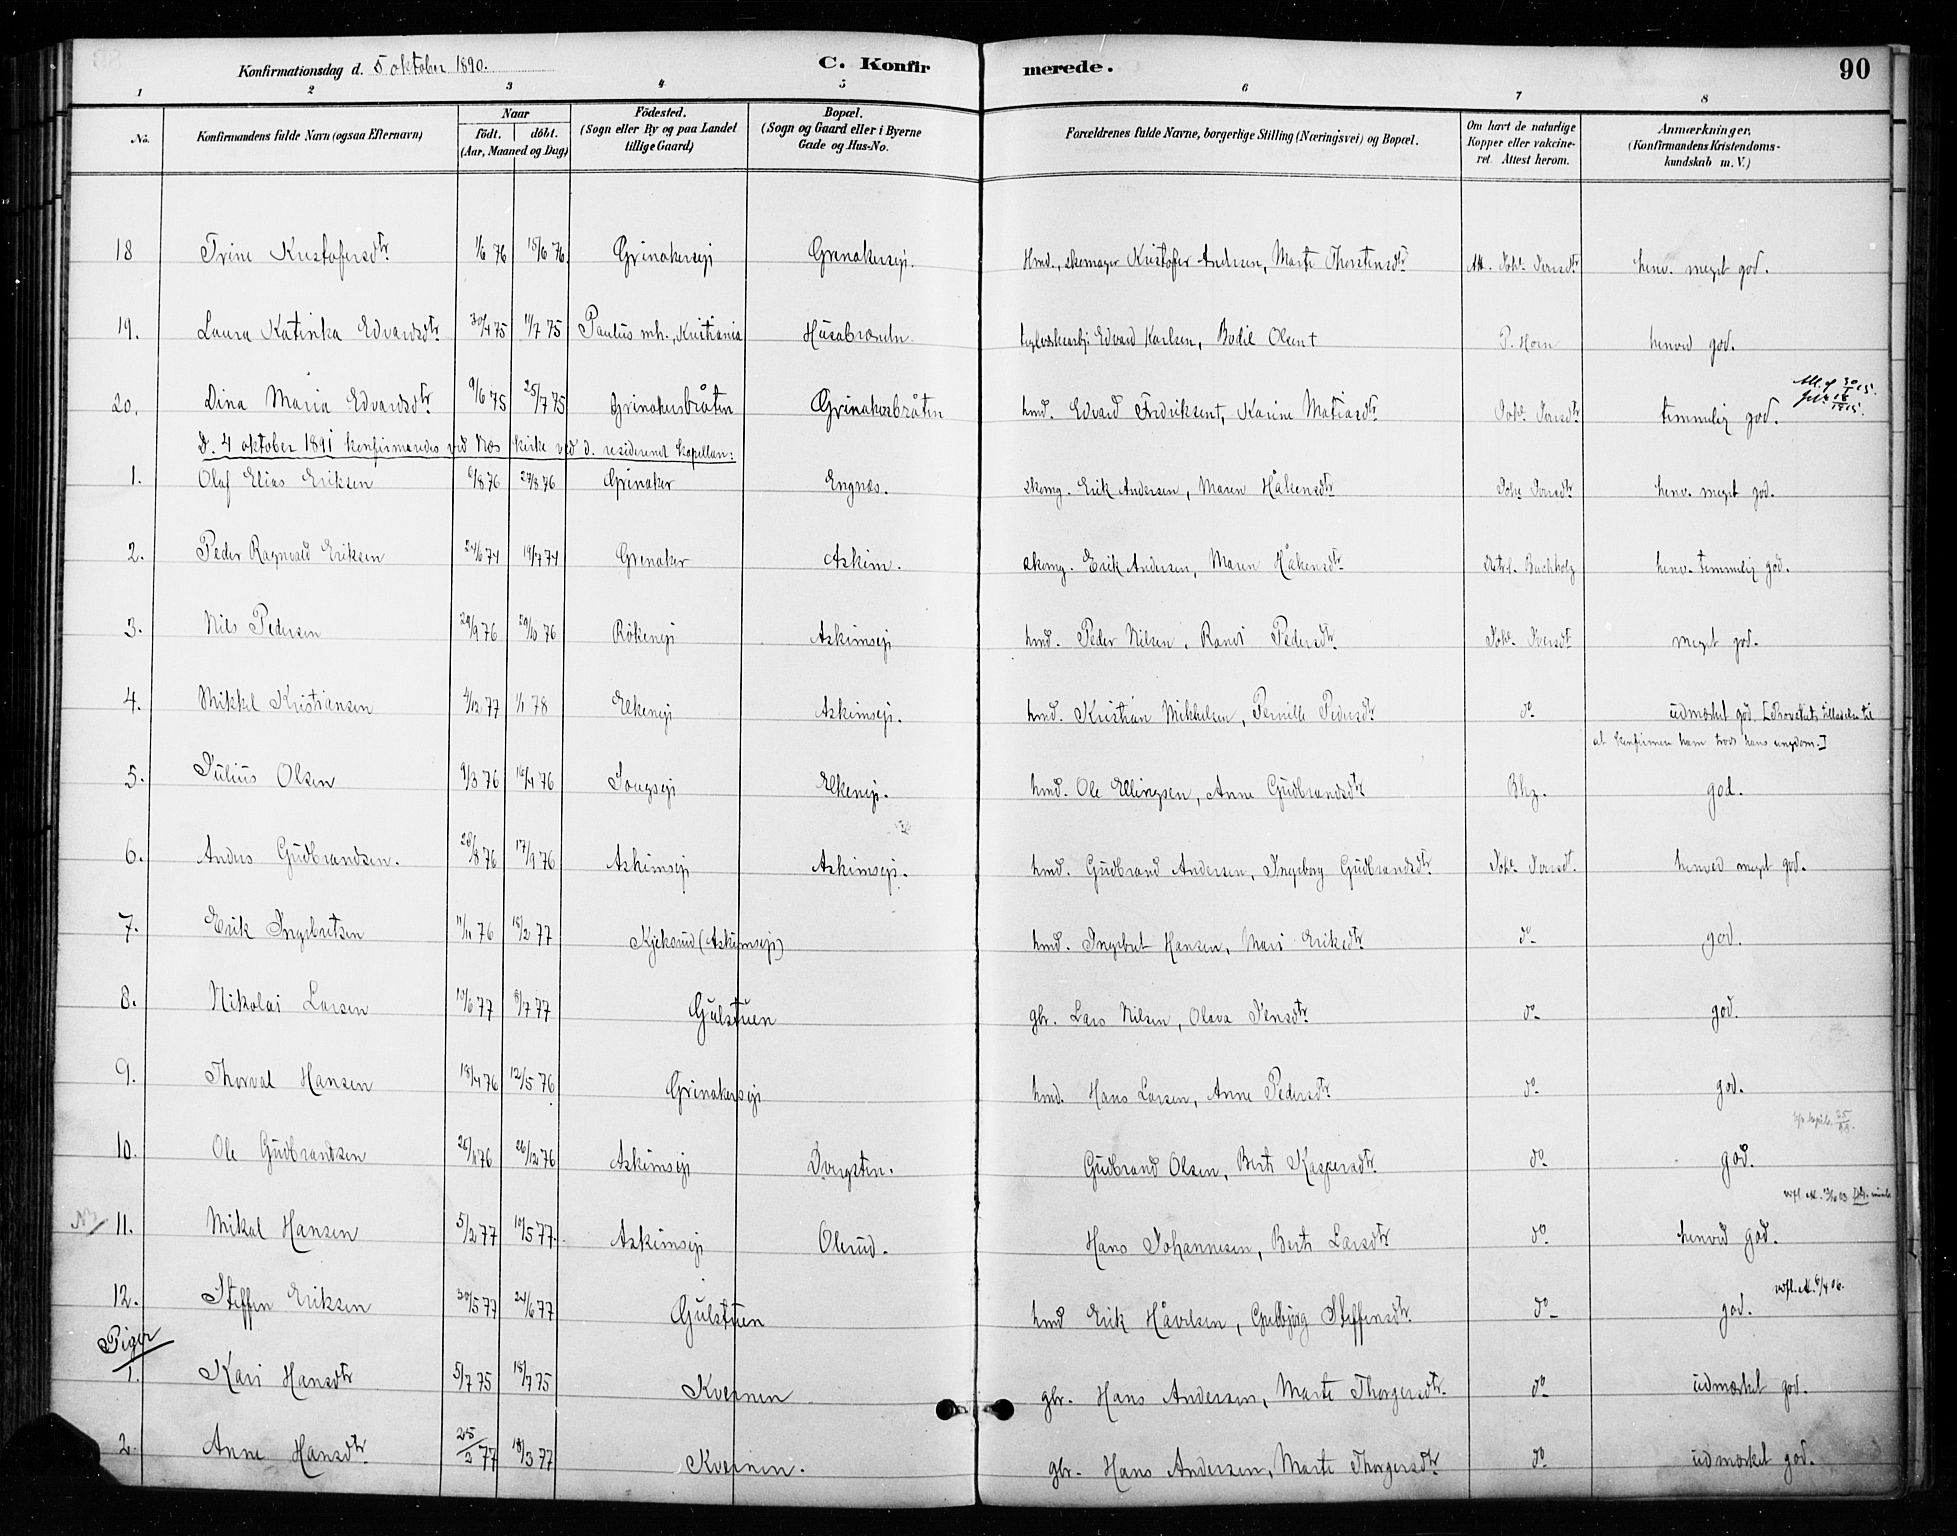 Konfirmationsdag d. 5 oktober 1890. C. Konfirmerede. 90
1 2 3 4 5 6 7 8
No. Konfirmandens fulde Navn (ogsaa Efternavn) Naar födt. döbt. (Aar, Maaned og Dag) Födested. (Sogn eller By og paa Landet tillige Gaard) Bopæl. (Sogn og Gaard eller i Byerne Gade og Hus-No. Forældrenes fulde Navne, borgerlige Stilling (Næringsvei) og Bopæl. Om havt de naturlige Kopper eller vakcineret. Attest herom. Anmærkninger, (Konfirmandens Kristendomskundskab m. V.)
18 Trine Kristofersdtr 1/6 76 18/6 76. Grinakerseji Grinakerseji. Hmd., skomager Kristofer Andersen, Marte Thorstensdtr henv. meget god.
19. Laura Katinka Edvardsdtr 30/4 75 11/7 75 Paulus mh., Kristiania Husabrændn. Edvard Karlsen, Bodil Olsen † P. Horn henved god.
20. Dina Maria Edvardsdtr 9/6 75 25/7 75 Grinakersbråten Grinakersbråten hmd. Edvard Fredriksen †, Karine Matiasdtr temmelig god.
D. 4 oktober 1891 konfirmeredes ved Næs kirke ved d. residerend kapellan:
1. Olaf Elias Eriksen 6/8 76 27/8 76 Grinaker Engnæs. skomg. Erik Andersen, Maren Håkensdtr henv. meget god.
2. Peder Ragnvald Eriksen 24/6 74 19/7 74 Grinaker Askim. skomg. Erik Andersen, Maren Håkensdtr Buchholz henv. temmelig god.
3. Nils Pedersen 29/9 76 29/10 76 Rökeneji Askimseji hmd. Peder Nilsen, Randi Pedersdtr meget god.
4. Mikkel Kristiansen 4/12 77 1/1 78 Elkeneji Askimseji. hmd. Kristian Mikkelsen, Pernille Pedersdtr do udmærket god. [Provstens tilladelse til
at konfirmere ham trods hans ungdom.]
5. Julius Olsen 9/3 76 16/4 76 Elkeneji. hmd. Ole Ellingsen, Anne Gudbrandsdtr Bhz. god.
6. Anders Gudbrandsen. 28/8 76 17/9 76 Askimseji Askimseji. hmd. Gudbrand Andersen, Ingeborg Gudbrandsdtr henved meget god.
7. Erik Ingebretsen 11/11 76 18/2 77 Kjeksrud (Askimseji) hmd. Ingebret Hansen, Mari Eriksdtr do god.
8. Nikolai Larsen 10/6 77 8/7 77 Gulstuen gbr. Lars Nilsen, Olava Jensdtr do god.
9. Thorval Hansen 18/4 76 12/5 76 Grinakerseji hmd. Hans Larsen, Anne Pedersdtr do god.
10. Ole Gudbrandsen 26/12 76 Askimseji Dvergsten. Gudbrand Olsen, Berte Kaspersdtr do god.
11. Mikal Hansen 5/2 77 10/5 77. Askimseji Olerud. Hans Johannesen, Berte Larsdtr do henved god.
12. Steffen Eriksen 30/5 77 24/6 77 Gulstuen hmd Erik Håvelsen, Gudbjörg Steffensdtr do god.
Piger
1. Kari Hansdtr 5/7 75 18/7 75 Kvernen gbr. Hans Andersen, Marte Thorgersdtr. do udmærket god.
2 Anne Hansdtr 25/2 77 18/3 77 Kvernen. gbr. Hans Andersen, Marte Thorgersdtr do udmærket god.